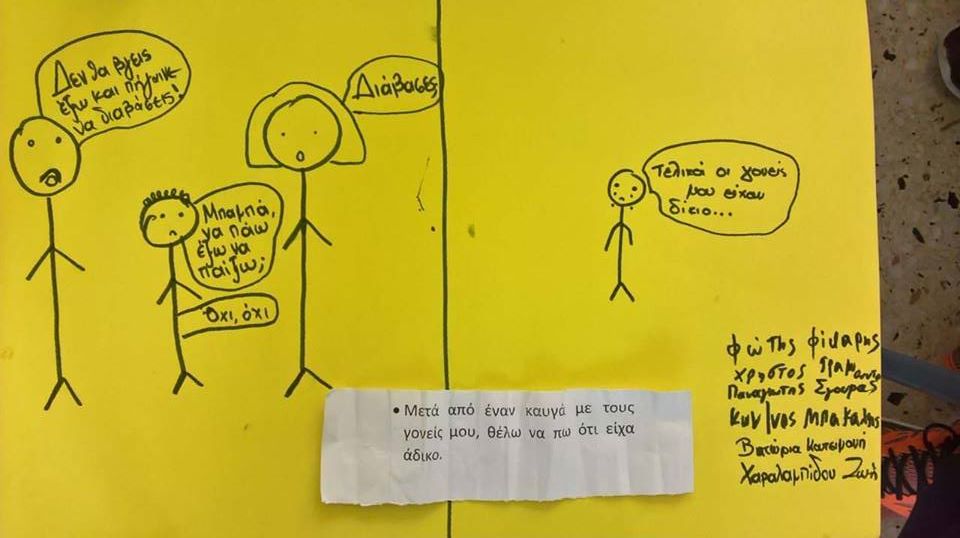 Δεν θα βγεις
έξω και πήγαινε
να διαβάσεις!
Διάβασες
Μπαμπά,
να πάω
έξω να
παίξω;
Όχι, όχι
Τελικά οι γονείς
μου είχαν
δίκιο...
• Μετά από έναν καυγά με τους
γονείς μου, θέλω να πω ότι είχα
άδικο.
Φώτης
Χρήστος
Παναγιώτης Σγουρας
Κων/νος Μπακάλης
Βικτώρια
Χαραλαμπίδου Ζωή